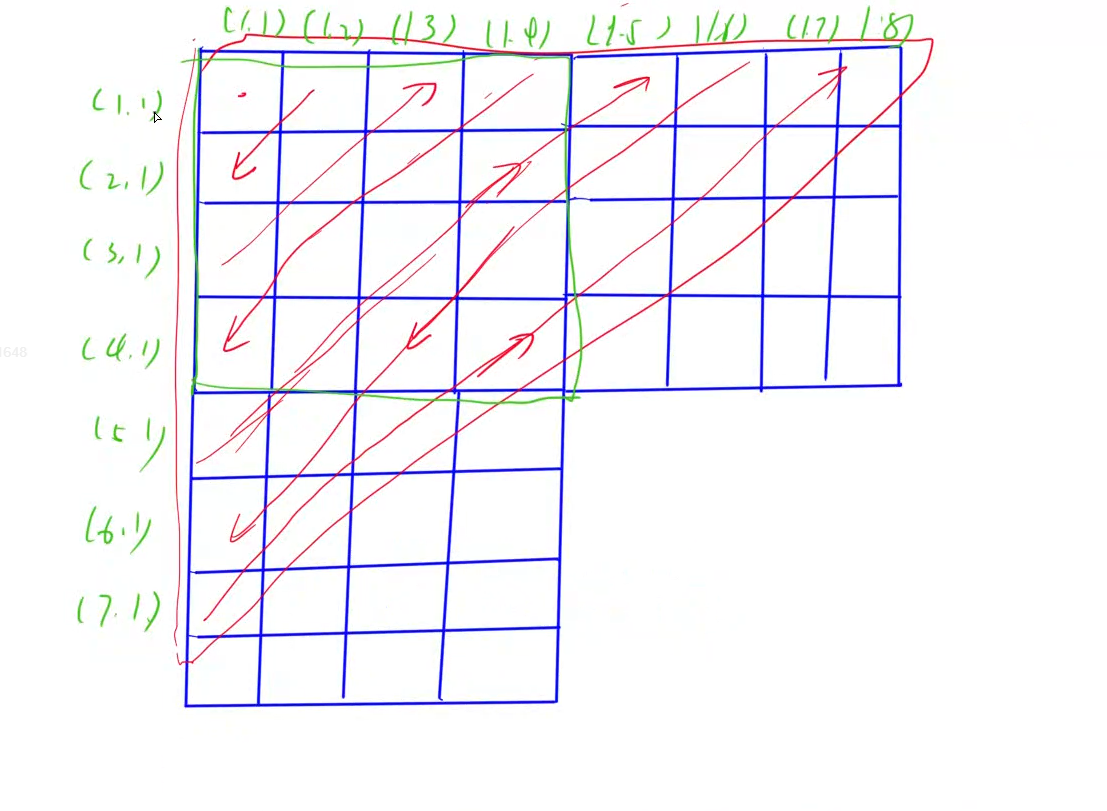 (1,1) (1,2) (1 3) (1-4) (1-5) (1,6) (1,7) 1 8)
(1,1)
(2,1)
(3,1)
(4,1)
(5 1)
(6,1)
(7,1)
1648